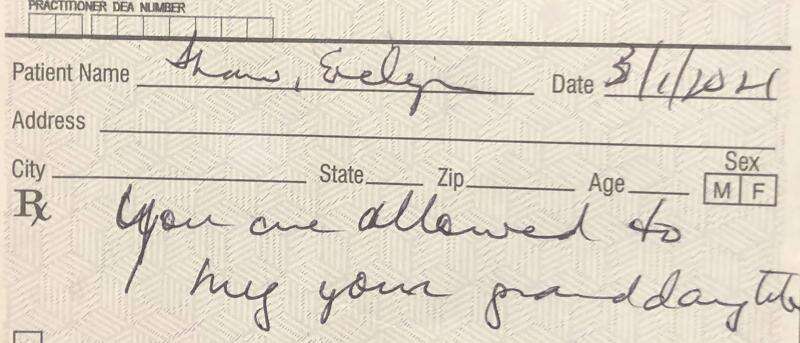 PRACTITIONER DEA NUMBER
Patient Name Shaw, Evelyn Date 3/1/2021
Address
City State Zip Age Sex M F
Rx You are allowed to
hug your granddaughter